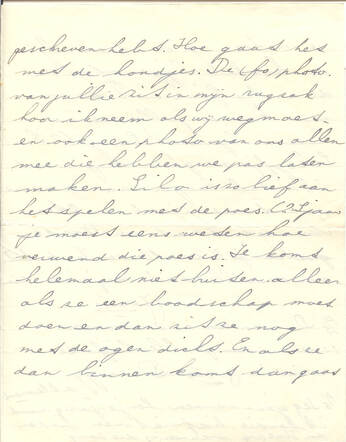 gescheven hebt. Hoe gaat het
met de hondjes. De (fo) photo.
van jullie zit in mijn rugzak
hoor ik neem als wij weg moet-
en ook een photo van ons allen
mee die hebben we pas laten
maken. Lilo is zo lief aan
het spelen met de poes. (2½ jaar
je moest eens weten hoe
verwend die poes is. Ze komt
helemaal niet buiten. alleen
als ze een boodschap moet
doen en dan zit ze nog
met de ogen dicht. En als ze
dan binnen komt dan gaat